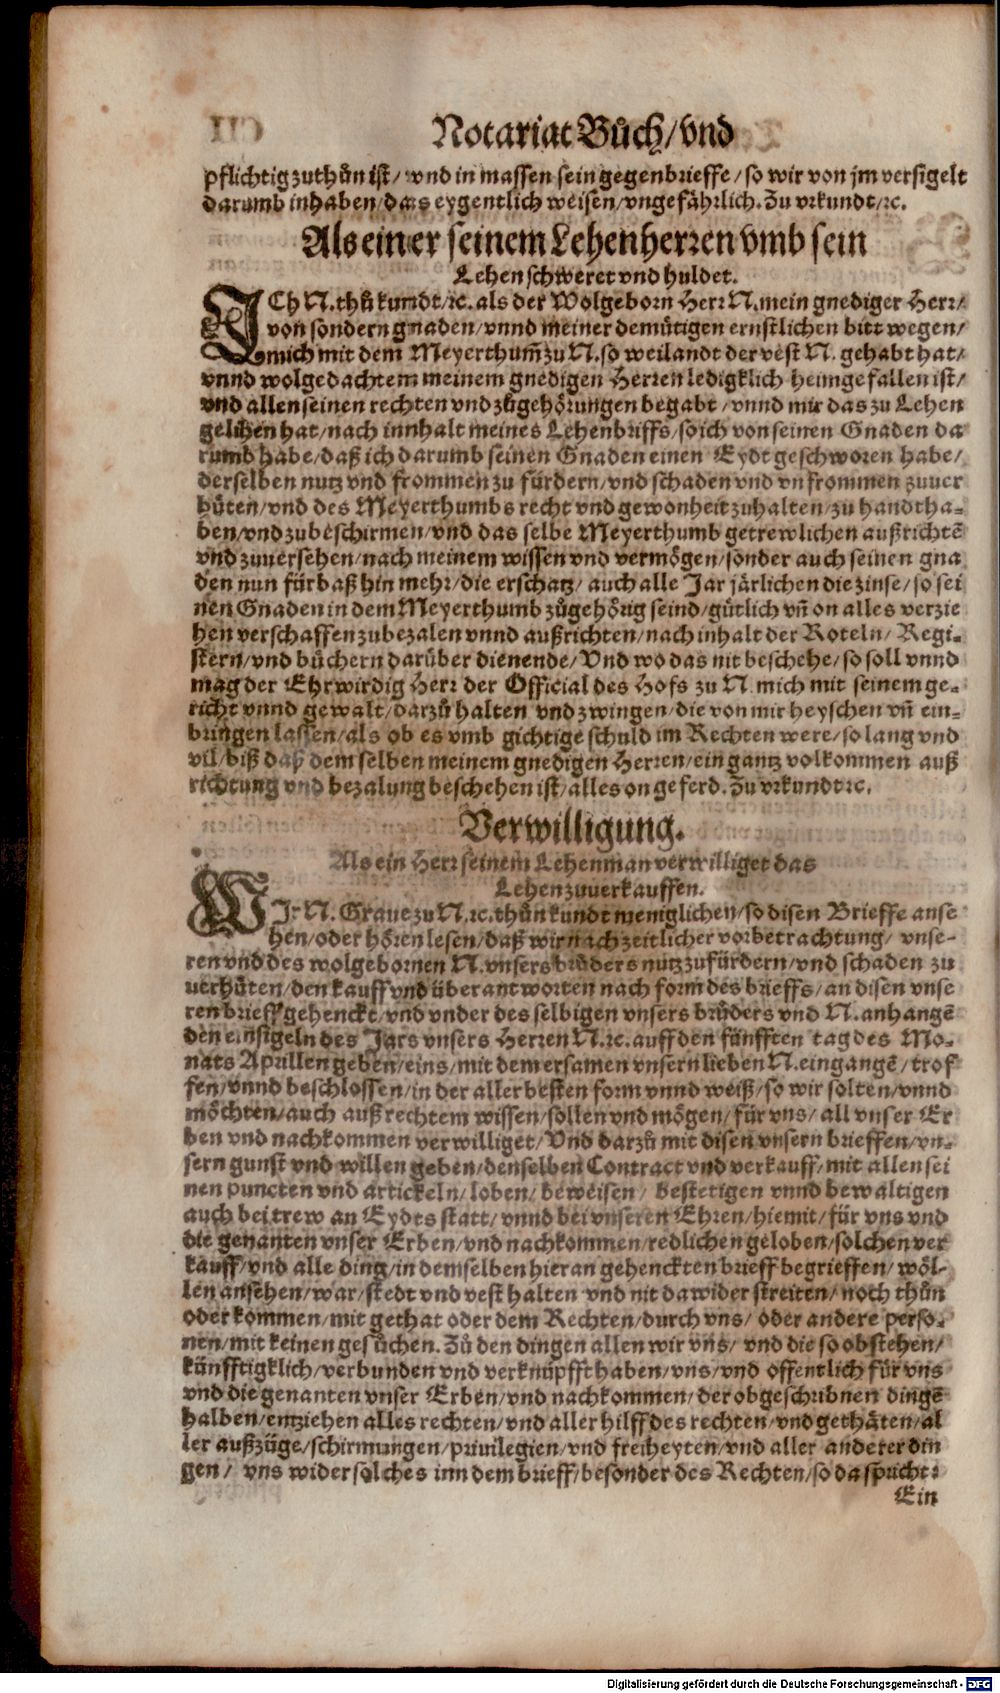 Notariat Bůch/vnd
pflichtig zuthůn ist/ vnd in massen sein gegenbrieffe/so wir von jm versigelt
darumb inhaben/das eygentlich weisen/vngefährlich. Zu vrkundt/ꝛc.
Als einer seinem Lehenherren vmb sein
Lehen schweret vnd huldet.
ICh N. thů kundt/ꝛc. als der Wolgeborn Herr N. mein gnediger Herr/
von sondern gnaden/vnnd meiner demůtigen ernstlichen bitt wegen/
mich mit dem Meyerthum̃ zu N. so weilandt der vest N. gehabt hat/
vnnd wolgedachtem meinem gnedigen Herren ledigklich heimgefallen ist/
vnd allen seinen rechten vnd zůgehörungen begabt/vnnd mir das zu Lehen
gelihen hat/nach innhalt meines Lehenbriffs/so ich von seinen Gnaden da
rumb habe/daß ich darumb seinen Gnaden einen Eydt geschworen habe/
derselben nutz vnd frommen zu fürdern/vnd schaden vnd vnfrommen zuuer
hüten/vnd des Meyerthumbs recht vnd gewonheit zuhalten/zu handtha-
ben/vnd zubeschirmen/vnd das selbe Meyerthumb getrewlichen außrichtẽ
vnd zuuersehen/nach meinem wissen vnd vermögen/sonder auch seinen gna
den nun fürbaß hin mehr/die erschatz/ auch alle Jar järlichen die zinse/so sei
nen Gnaden in dem Meyerthumb zůgehörig seind/gütlich vñ on alles verzie
hen verschaffen zubezalen vnnd außrichten/nach inhalt der Roteln/ Regi-
stern/vnd büchern darüber dienende/Vnd wo das nit beschehe/so soll vnnd
mag der Ehrwirdig Herr der Official des Hofs zu N. mich mit seinem ge-
richt vnnd gewalt/darzů halten vnd zwingen/die von mir heyschen vñ ein-
bringen lassen/als ob es vmb gichtige schuld im Rechten were/so lang vnd
vil/biß daß demselben meinem gnedigen Herren/ein gantz volkommen auß
richtung vnd bezalung beschehen ist/alles on geferd. Zu vrkundt ꝛc.
Verwilligung.
Als ein Herr seinem Lehenman verwilliget das
Lehen zuuerkauffen.
WJr N. Graue zu N. ꝛc. thůn kundt meniglichen/so disen Brieffe anse
hen/oder hören lesen/daß wir nach zeitlicher vorbetrachtung/ vnse-
ren vnd des wolgebornen N. vnsers brůders nutz zufürdern/vnd schaden zu
uerhüten/den kauff vnd überantworten nach form des brieffs/an disen vnse
ren brieff gehenckt/vnd vnder des selbigen vnsers brůders vnd N. anhangẽ
den einsigeln des Jars vnsers Herren N. ꝛc. auff den fünfften tag des Mo-
nats Aprillen geben/eins/mit dem ersamen vnsern lieben N. eingangẽ/trof
fen/vnnd beschlossen/in der aller besten form vnnd weiß/so wir solten/vnnd
möchten/auch auß rechtem wissen/sollen vnd mögen/für vns/ all vnser Er
ben vnd nachkommen verwilliget/Vnd darzů mit disen vnsern brieffen/vn-
sern gunst vnd willen geben/denselben Contract vnd verkauff/mit allen sei
nen puncten vnd artickeln/loben/ beweisen/ bestetigen vnnd bewaltigen
auch bei trew an Eydts statt/vnnd bei vnseren Ehren/hiemit/für vns vnd
die genanten vnser Erben/vnd nachkommen/redlichen geloben/solchen ver
kauff/vnd alle ding/in demselben hieran gehenckten brieff begrieffen/wöl-
len ansehen/war/stedt vnd vest halten vnd nit dawider streiten/noch thůn
oder kommen/mit gethat oder dem Rechten/durch vns/ oder andere perso-
nen/mit keinen gesůchen. Zů den dingen allen wir vns/ vnd die so obstehen/
künfftigklich/verbunden vnd verknüpfft haben/vns/vnd offentlich für vns
vnd die genanten vnser Erben/vnd nachkommen/der obgeschribnen dingẽ
halben/entziehen alles rechten/vnd aller hilff des rechten/vnd gethäten/al
ler außzüge/schirmungen/priuilegien/vnd freiheyten/vnd aller anderer din
gen/ vns wider solches inn dem brieff/besonder des Rechten/so da spricht:
Ein
Digitalisierung gefördert durch die Deutsche Forschungsgemeinschaft - DFG